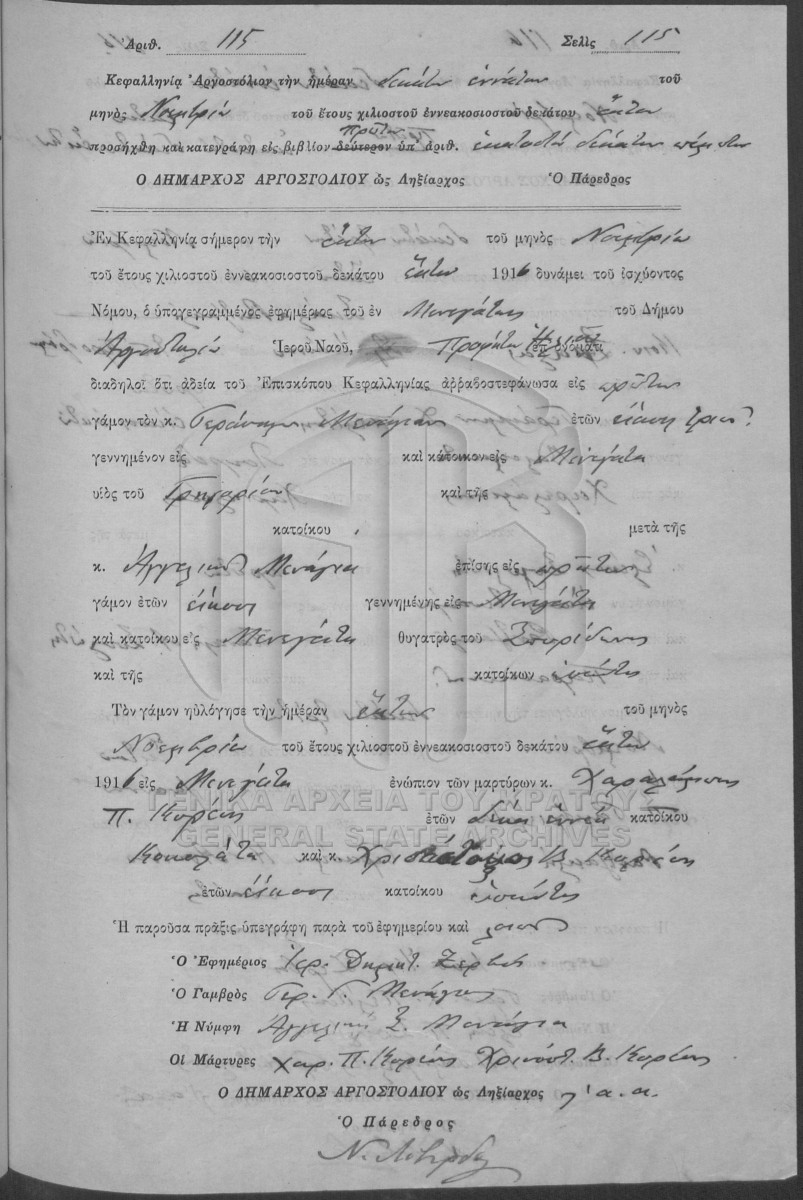 Ἀριθ. 115 Σελὶς 115
Κεφαλληνίᾳ Ἀργοστόλιον τὴν ἡμέραν δεκάτην ἐννάτην τοῦ
μηνὸς Νοεμβρίου τοῦ ἔτους χιλιοστοῦ ἐννεακοσιοστοῦ δεκάτου ἕκτου
πρῶτον
προσήχθη καὶ κατεγράφη εἰς βιβλίον δεύτερον ὑπ' ἀριθ. ἑκατοστὸν δέκατον πέμπτον
Ο ΔΗΜΑΡΧΟΣ ΑΡΓΟΣΤΟΛΙΟΥ ὡς Ληξίαρχος Ὁ Πάρεδρος
Ἐν Κεφαλληνίᾳ σήμερον τὴν ἕκτην τοῦ μηνὸς Νοεμβρίου
τοῦ ἔτους χιλιοστοῦ ἐννεακοσιοστοῦ δεκάτου ἕκτου 1916 δυνάμει τοῦ ἰσχύοντος
Νόμου, ὁ ὑπογεγραμμένος ἐφημέριος τοῦ ἐν Μενεγάτοις τοῦ Δήμου
Ἀργοστολίου Ἱεροῦ Ναοῦ, Προφήτου Ἠλιοὺ ἐπ' ὀνόματι
διαδηλοῖ ὅτι ἀδείᾳ τοῦ Ἐπισκόπου Κεφαλληνίας ἀρραβοστεφάνωσα εἰς πρῶτον
γάμον τὸν κ. Γεράσιμον Μενάγιαν ἐτῶν εἴκοσι τριῶν
γεννημένον εἰς καὶ κάτοικον εἰς Μενεγάτα
υἱὸς τοῦ Γρηγορίου καὶ τῆς
κατοίκου μετὰ τῆς
κ. Ἀγγελικῆς Μενάγια ἐπίσης εἰς πρῶτον
γάμον ἐτῶν εἴκοσι γεννημένης εἰς Μενεγάτα
καὶ κατοίκου εἰς Μενεγάτα θυγατρὸς τοῦ Σπυρίδωνος
καὶ τῆς κατοίκων
Τὸν γάμον ηὐλόγησε τὴν ἡμέραν ἕκτην τοῦ μηνὸς
Νοεμβρίου τοῦ ἔτους χιλιοστοῦ ἐννεακοσιοστοῦ δεκάτου ἕκτου
1916 εἰς Μενεγάτα ἐνώπιον τῶν μαρτύρων κ. Χαραλάμπους
Π. ἐτῶν δέκα ἐννέα κατοίκου
Κοκολάτα καὶ κ. Β.
ἐτῶν εἴκοσι κατοίκου
Ἡ παροῦσα πρᾶξις ὑπεγράφη παρὰ τοῦ ἐφημερίου καὶ λοιπῶν
Ὁ Ἐφημέριος Ἱερ. Ζερβός
Ὁ Γαμβρὸς Γερ. Γ. Μενάγιας
Ἡ Νύμφη Ἀγγελικὴ Σ. Μενάγια
Οἱ Μάρτυρες Χαρ. Π. Χρυσόστ. Β.
Ο ΔΗΜΑΡΧΟΣ ΑΡΓΟΣΤΟΛΙΟΥ ὡς Ληξίαρχος α.α.
Ὁ Πάρεδρος
Ν.
ΓΕΝΙΚΑ ΑΡΧΕΙΑ ΤΟΥ ΚΡΑΤΟΥΣ
GENERAL STATE ARCHIVES